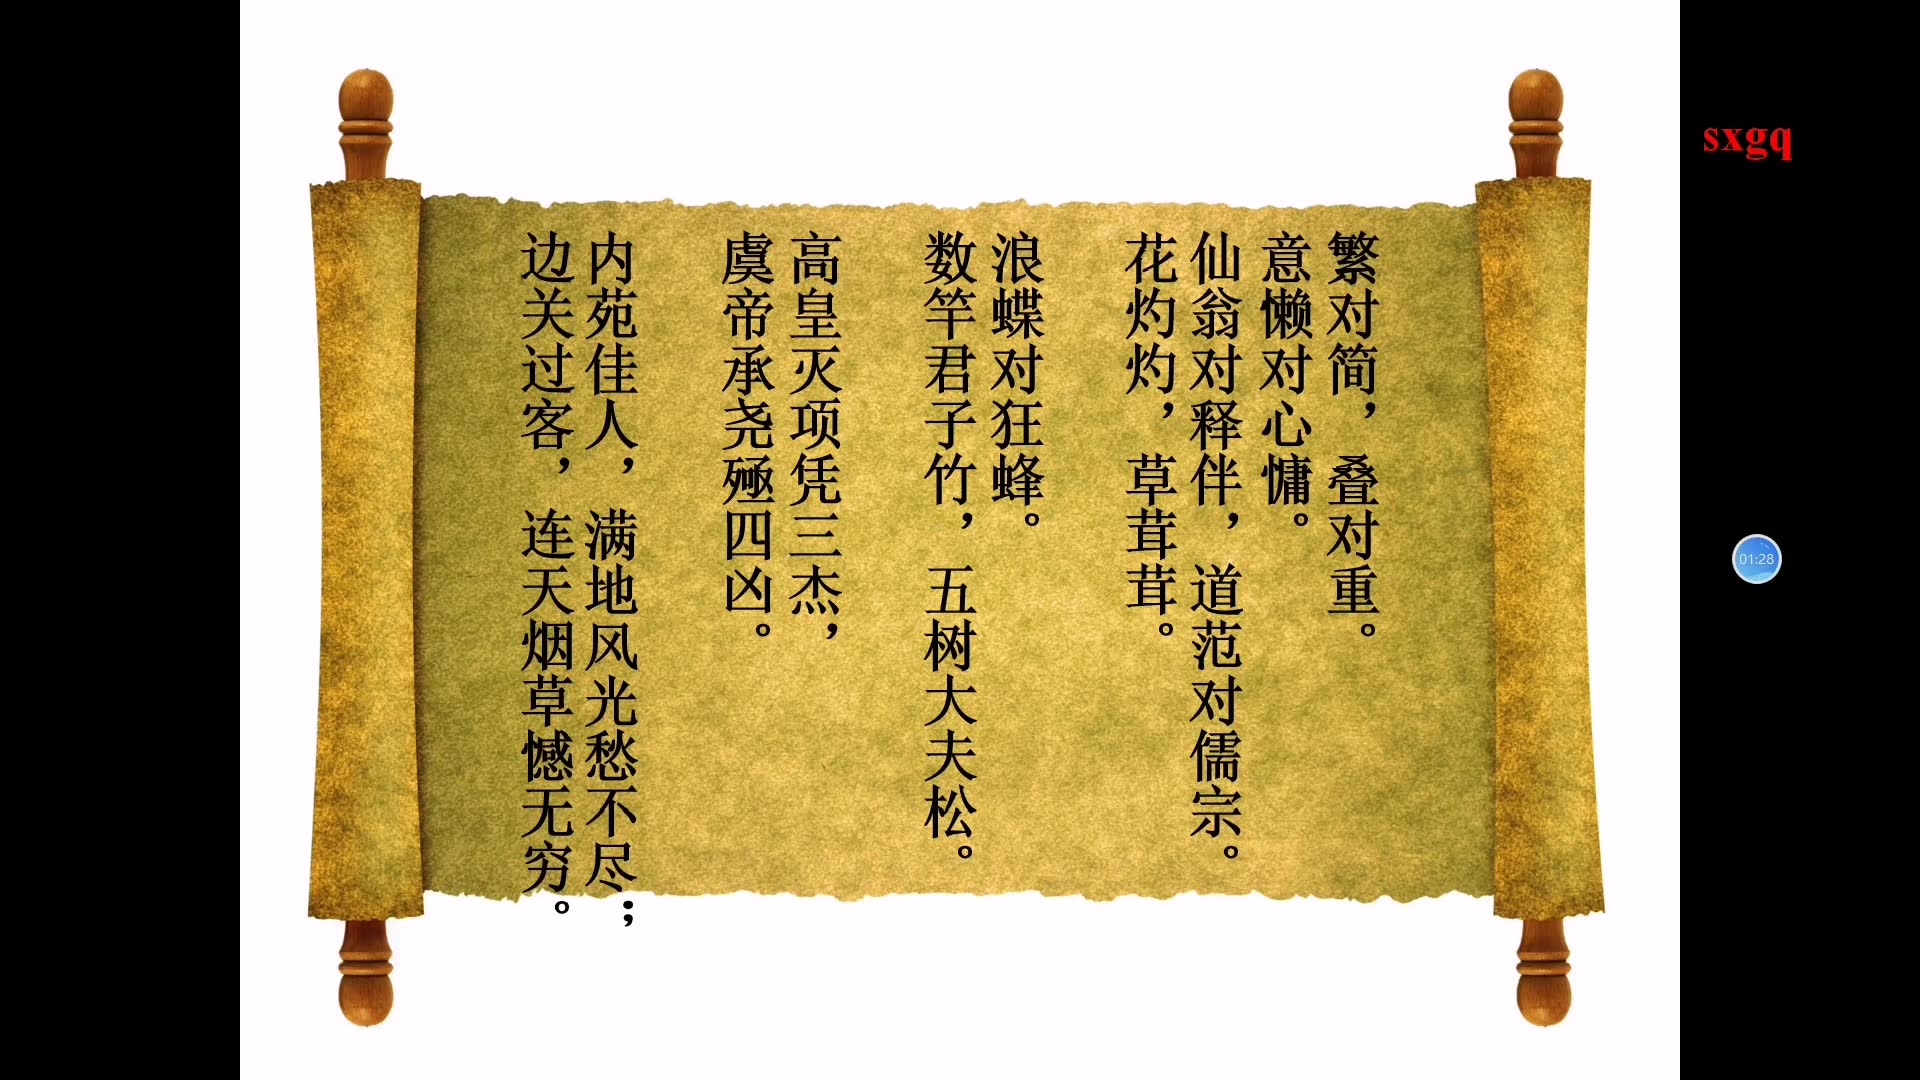 繁对简，叠对重。
意懒对心慵。
仙翁对释伴，道范对儒宗。
花灼灼，草茸茸。
浪蝶对狂蜂。
数竿君子竹，五树大夫松。
高皇灭项凭三杰，
虞帝承尧殛四凶。
内苑佳人，满地风光愁不尽；
边关过客，连天烟草憾无穷。
sxgq
01:28